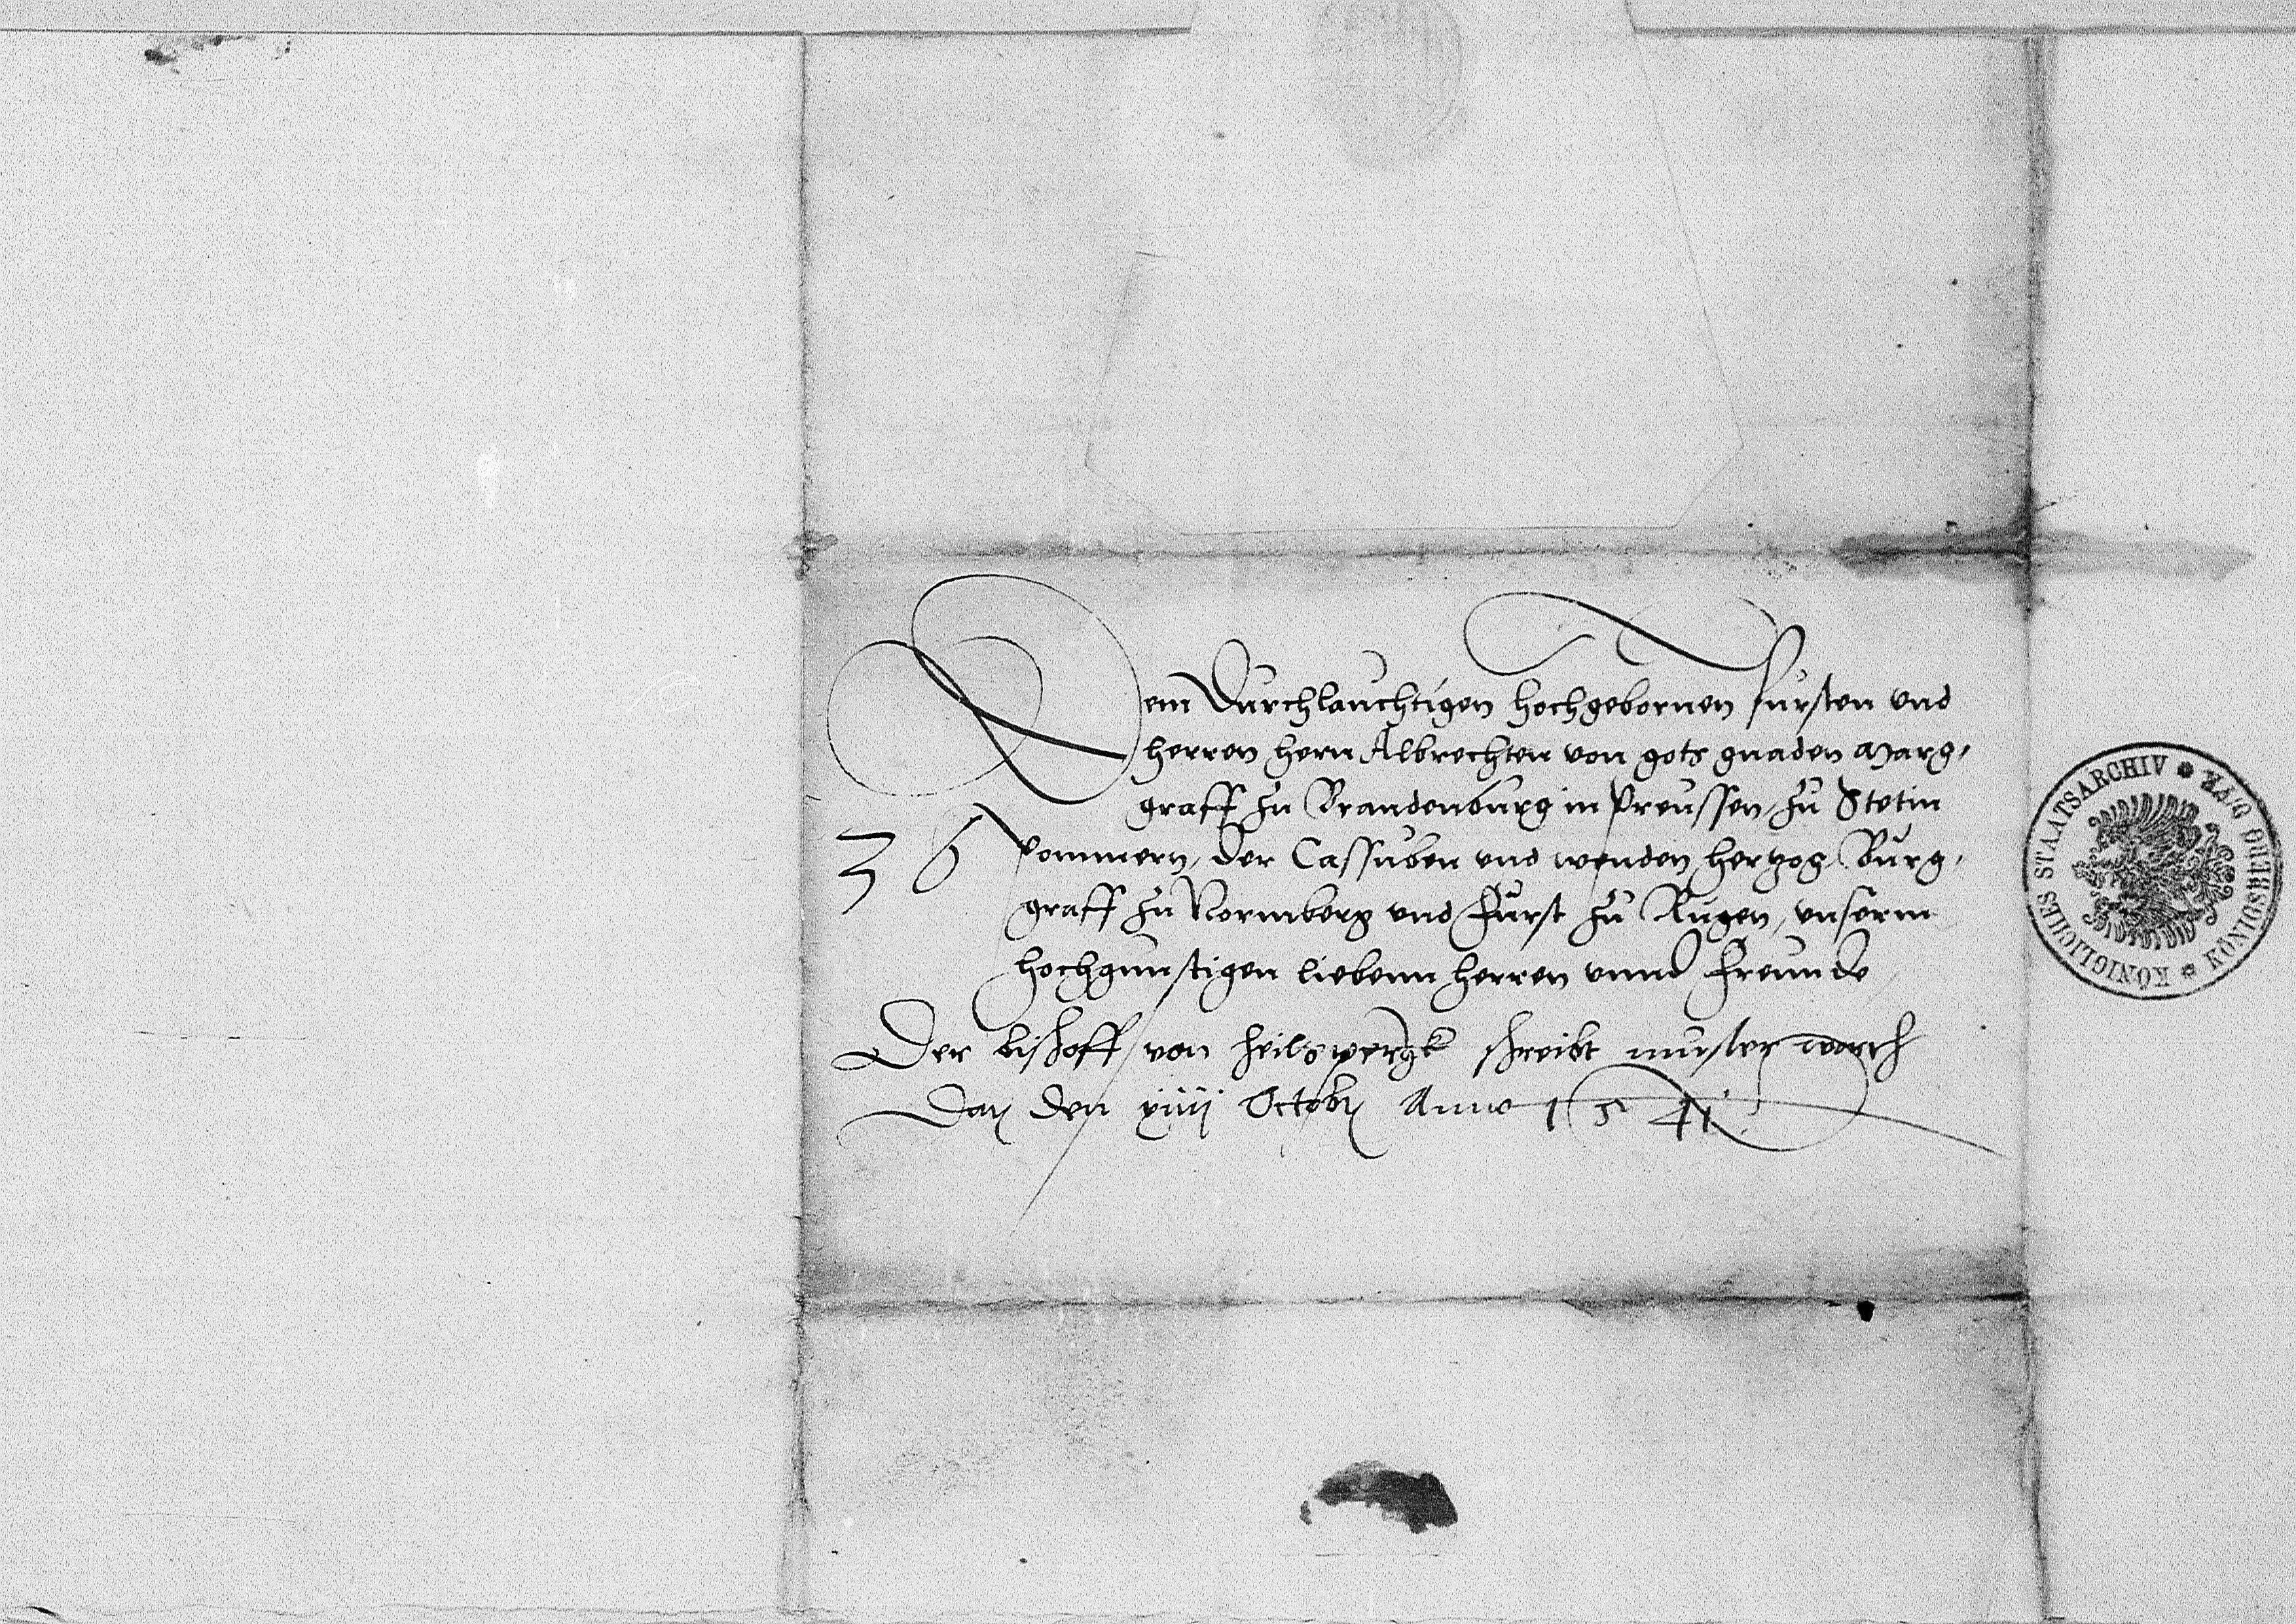 Dem Durchlauchtigen hochgebornen fursten vnd
herren hern Albrechten von gots gnaden Marg,
graff zu Brandenburg in Preussen, zu Stetin
36
Pommern, der Cassuben vnd wenden hertzog, Burg,
graff zu Normberg vnd Furst zu Rugen, vnserm
hochgunstigen liebenn herren vnnd Freunde
Der bischoff von heilspergk schreibt
Datum den xiiii Octobris Anno 1541
KÖNIGLICHES STAATSARCHIV * KÖNIGSBERG *